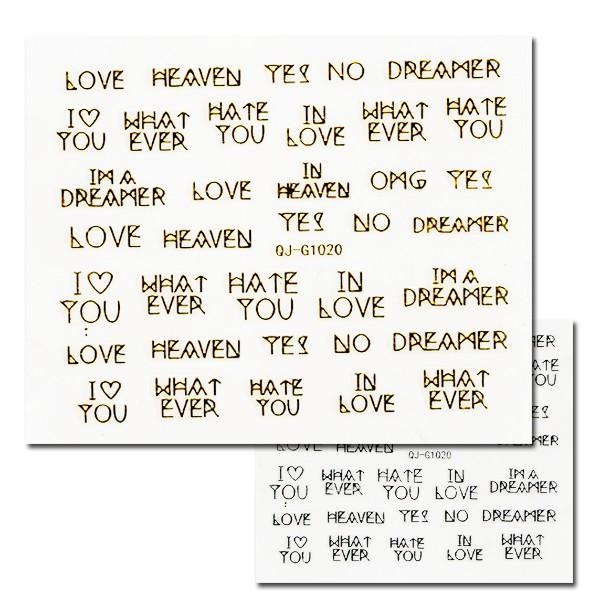 LOVE HEAVEN YES NO DREAMER
I♡ WHAT HATE IN WHAT HATE
YOU EVER YOU LOVE EVER YOU
IM A IN
DREAMER LOVE HEAVEN OMG YES
LOVE HEAVEN YES NO DREAMER
QJ-G1020
I♡ WHAT HATE IN IM A
YOU EVER YOU LOVE DREAMER
LOVE HEAVEN YES NO DREAMER
I♡ WHAT HATE IN WHAT
YOU EVER YOU LOVE EVER
MER
ATE
YOU
YES
LOVE HEAVEN MER
QJ-G1020
I♡ WHAT HATE IN IM A
YOU EVER YOU LOVE DREAMER
LOVE HEAVEN YES NO DREAMER
I♡ WHAT HATE IN WHAT
YOU EVER YOU LOVE EVER